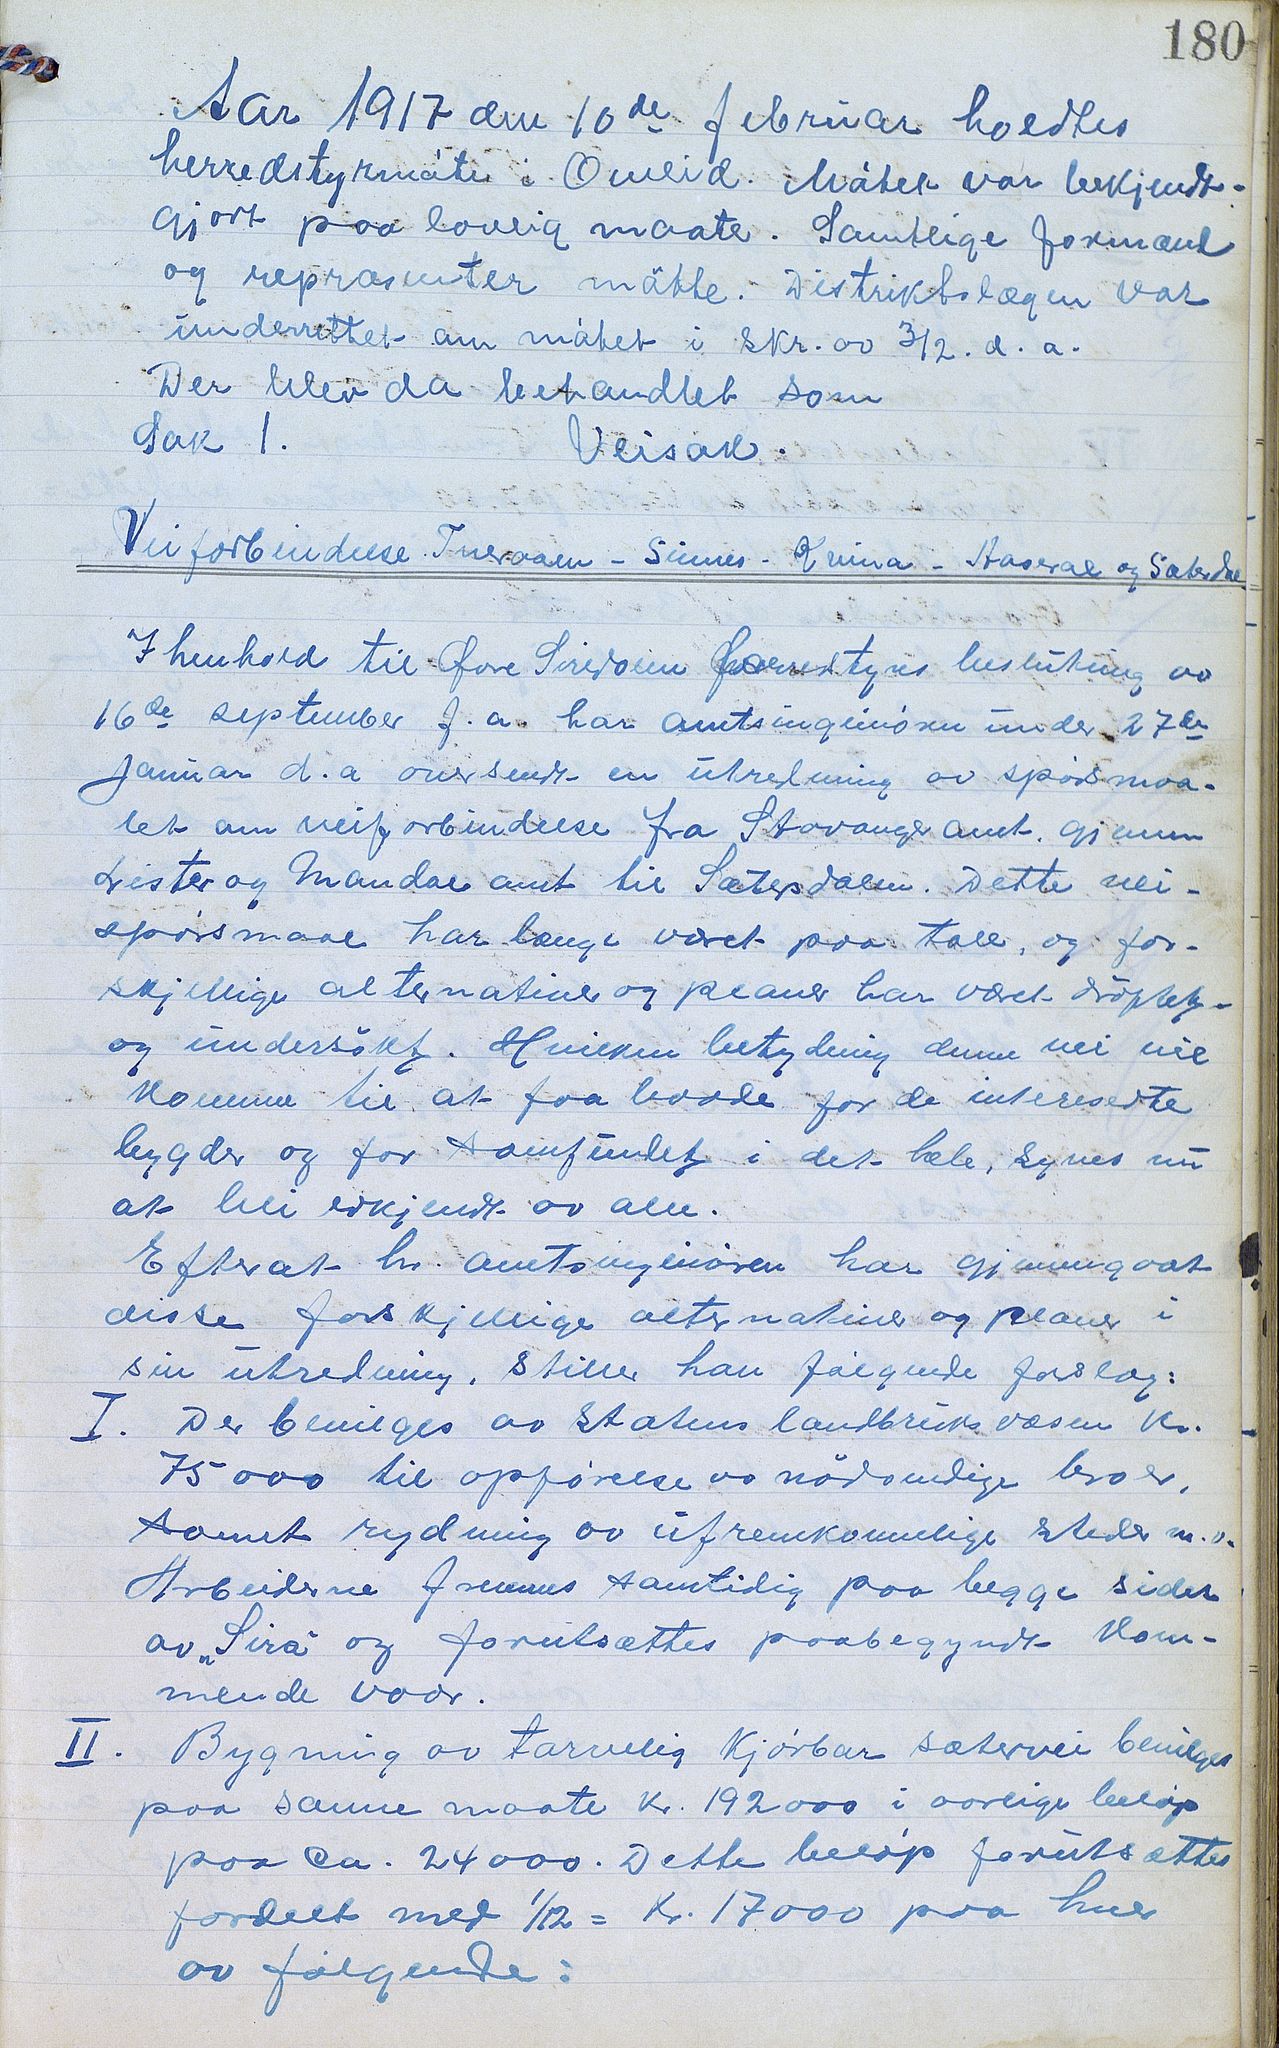 180
Aar 1917 den 10de februar holdtes
herredstyrmöte i Ovrid. Mötet var bekjendt-
gjort paa lovlig maate. Samtlige formænd
og repræsenter mötte. Distriktslægen var
underrettet om mötet i skr. av 3/2. d. a.
Der blev da behandlet som
Sak 1. Veisak.
Veiforbindelse Tueraaen - Sinnes - Kvina - Aaseral og Sæterdal
I henhold til Övre Siredalen herredstyrs beslutning av
16de september f. a. har amtsingeniören under 27de
januar d. a oversendt en utredning av spörsmaa-
let om veiforbindelse fra Stavanger amt. gjennem
Lister og Mandal amt til Sætersdalen. Dette vei-
spörsmaal har længe været paa tale, og for-
skjellige alternativer og planer har været dröftet
og undersökt. Hvilken betydning denne vei vil
komme til at faa baade for de interesserte
bygder og for samfundet i det hele, synes nu
at bli erkjendt av alle.
Efterat hr. amtsingeniören har gjennemgaat
disse forskjellige alternativer og planer i
sin utredning, stiller han fölgende forslag:
I. Der bevilges av Statens landbruksvæsen kr.
75000 til opförelse av nödvendige broer,
samt rydning av ufremkommelige steder m. v.
Arbeiderne fremmes samtidig paa begge sider
av „Sira" og forutsættes paabegyndt kom-
mende vaar.
II. Bygning av tarvelig kjörbar sætervei bevilges
paa samme maate kr. 192000 i aarlige belöp
paa ca. 24000. Dette belöp forutsættes
fordelt med 1/12 = kr. 17000 paa hver
av fölgende: